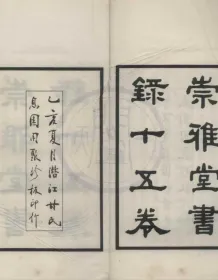 崇雅堂書
錄十五卷
乙亥夏月潛江甘氏
息園用聚珍板印行